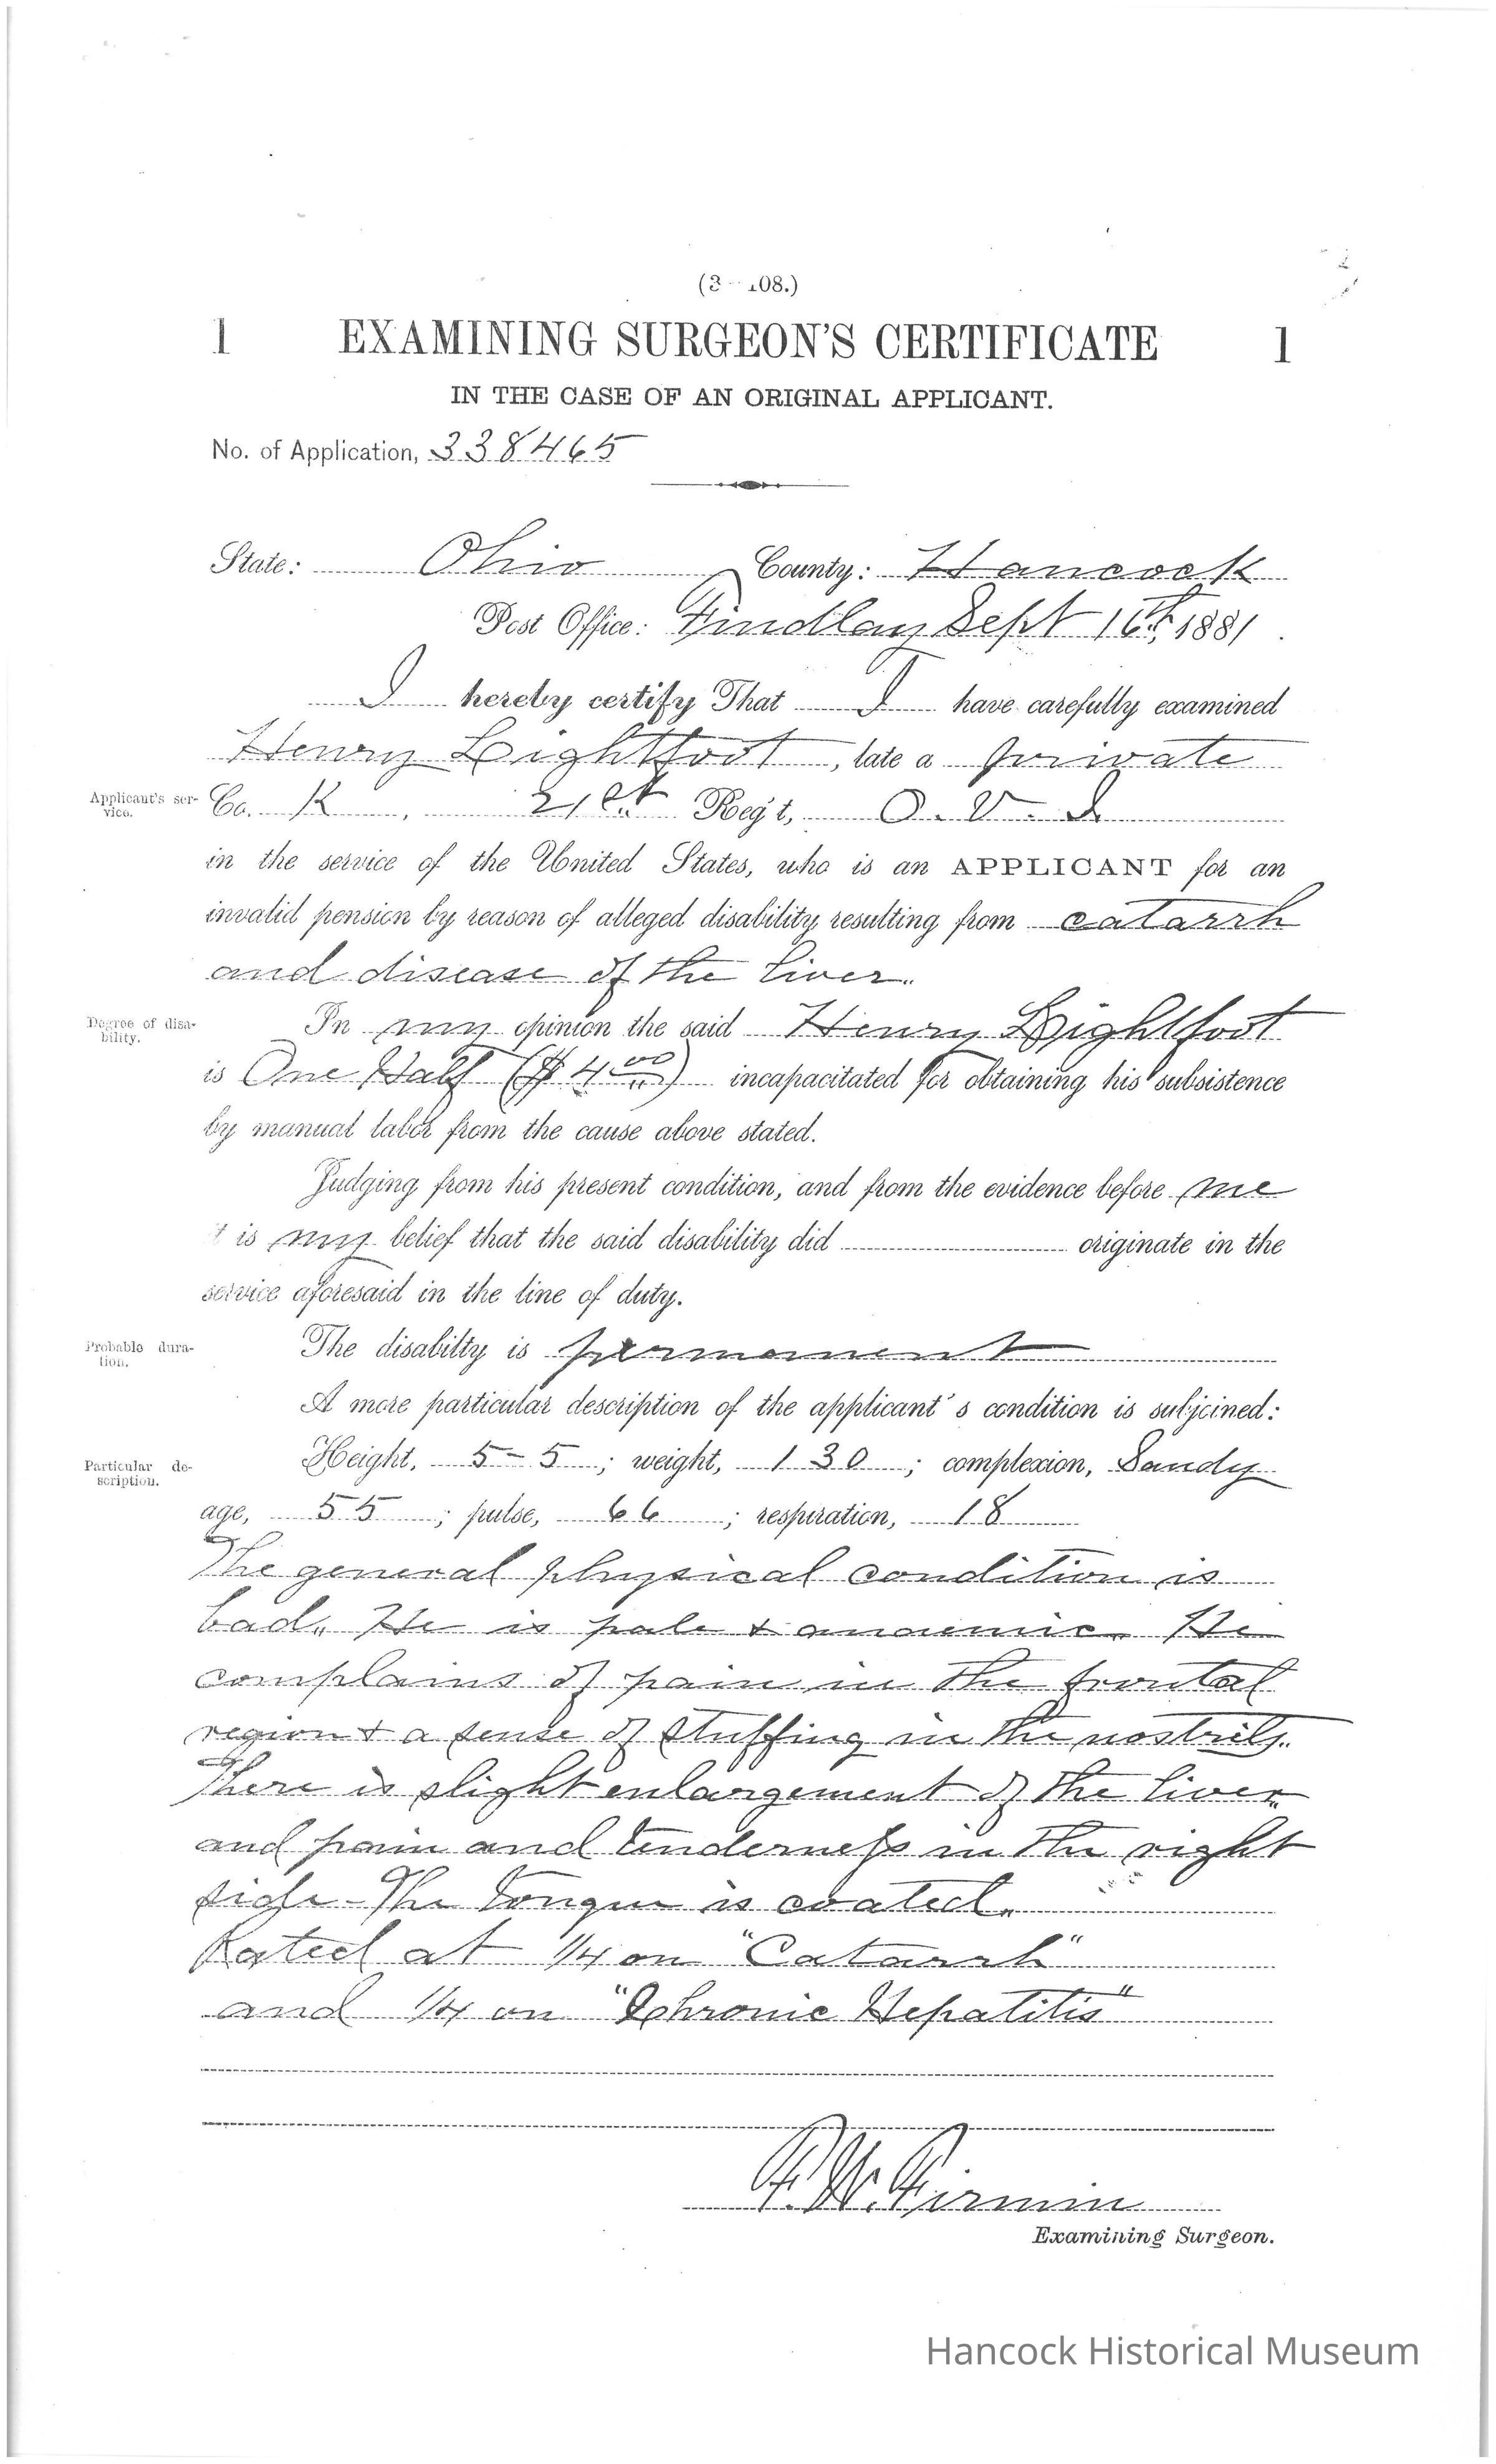 (3—108.)
1 EXAMINING SURGEON'S CERTIFICATE 1
IN THE CASE OF AN ORIGINAL APPLICANT.
No. of Application, 338465
State: Ohio County: Hancock
Post Office: Findlay Sept 16th, 1881.
I hereby certify That I have carefully examined
Henry Lightfoot, late a private
Applicant's ser-
vice.
Co. K, 21st Reg't, O. V. I
in the service of the United States, who is an APPLICANT for an
invalid pension by reason of alleged disability resulting from catarrh
and disease of the liver.
Degree of disa-
bility.
In my opinion the said Henry Lightfoot
is One Half ($4.00) incapacitated for obtaining his subsistence
by manual labor from the cause above stated.
Judging from his present condition, and from the evidence before me
t is my belief that the said disability did originate in the
service aforesaid in the line of duty.
Probable dura-
tion.
The disabilty is permanent
A more particular description of the applicant's condition is subjoined:
Particular de-
scription.
Height, 5-5; weight, 130; complexion, Sandy
age, 55; pulse, 66; respiration, 18
The general physical condition is
bad. He is pale & anaemic. He
complains of pain in the frontal
region & a sense of stuffing in the nostrils.
There is slight enlargement of the liver
and pain and tenderness in the right
side - The tongue is coated.
Rated at 1/4 on "Catarrh"
and 1/4 on "Chronic Hepatitis"
F. W. Firmin
Examining Surgeon.
Hancock Historical Museum